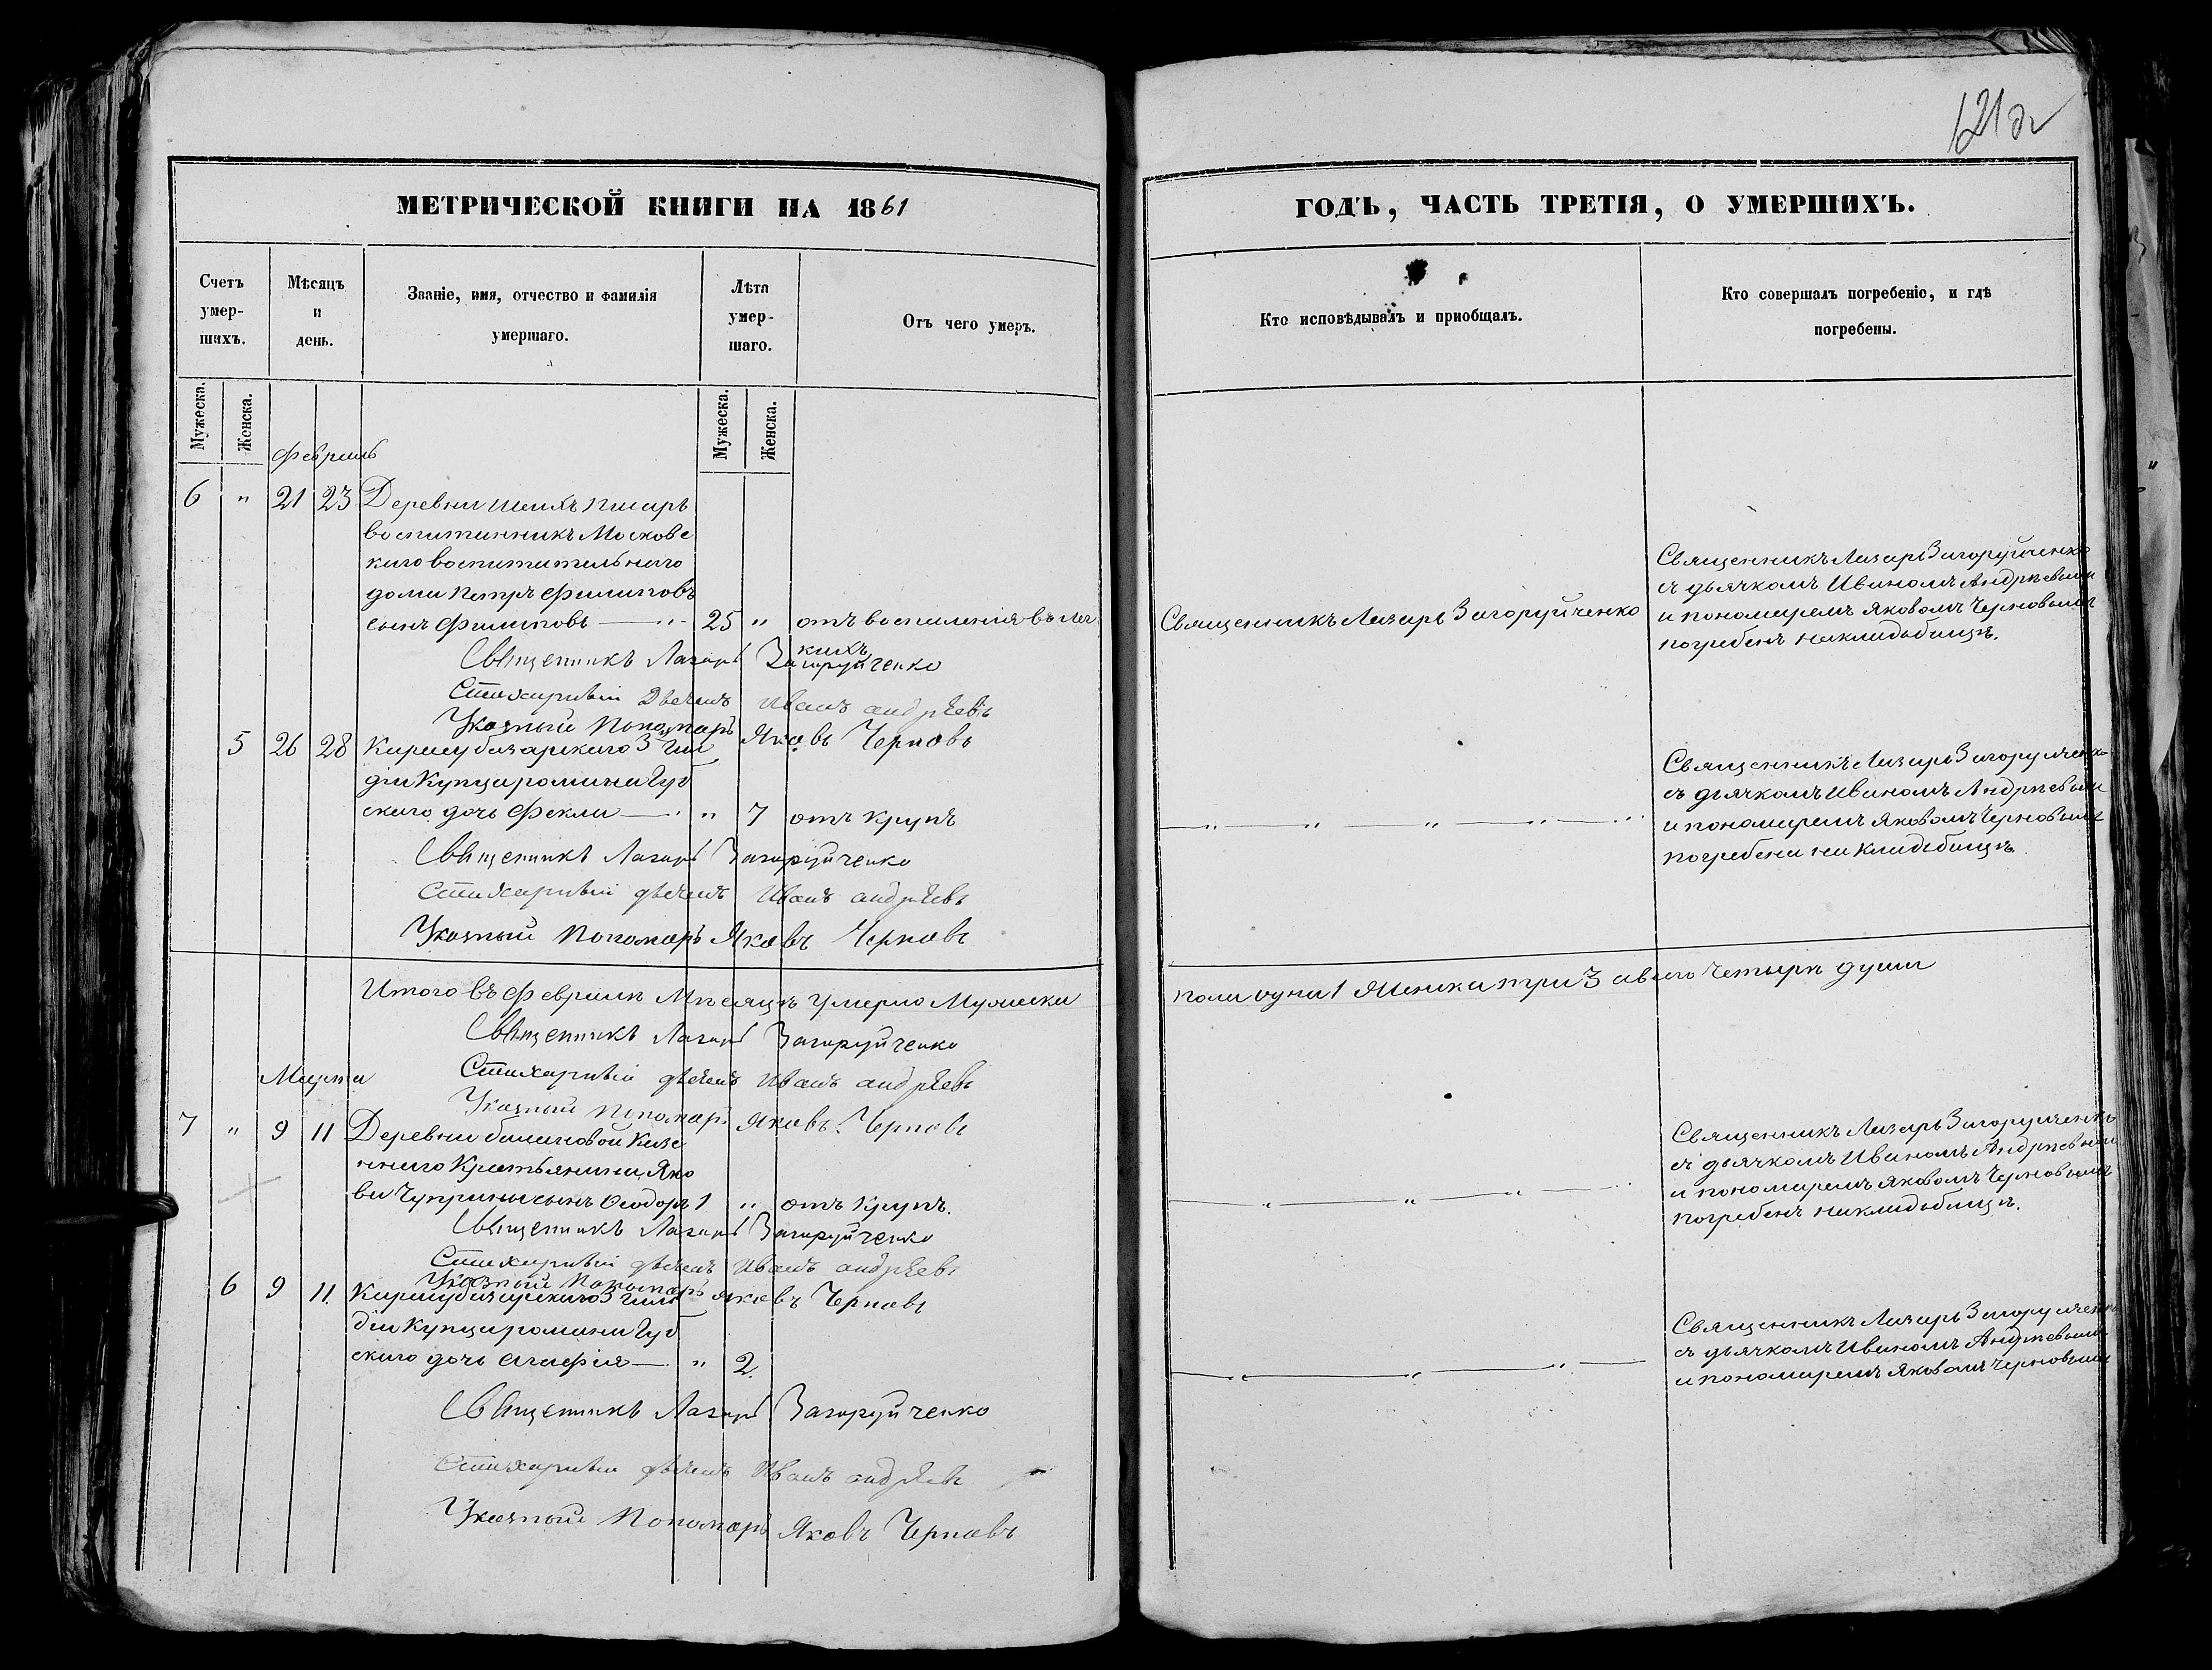 621 об
МЕТРИЧЕСКОЙ КНИГИ НА 1861
Счетъ умер-шихъ.
Мѣсяцъ и день.
Званіе, имя, отчество и фамилія умершаго.
Лѣта умер-шаго.
Отъ чего умеръ.
Мужеска.
Женска.
Мужеска.
Женска.
Февраль
6 " 21 23 Деревни Шейхъ
воспитанникъ Московс
каго воспитательнаго
дома Петръ Филиповъ
сынъ Филиповъ — 25 " отъ воспаленія въ лег
кихъ
Священникъ Лазарь Загоруйченко
Стихарный Дьячекъ Иванъ андрѣевъ
Указный Пономарь Яковъ Черновъ
5 26 28 Карасубазарскаго 3 гил
діи Купца романа Губ
скаго дочь Фекла — " 7 отъ крупъ
Священникъ Лазарь Загоруйченко
Стихарный дьячекъ Иванъ андрѣевъ
Указный Пономарь Яковъ Черновъ
Итого въ Февралѣ Мѣсяцѣ Умерло Мужеска
Священникъ Лазарь Загоруйченко
Стихарный дьячекъ Иванъ андрѣевъ
Указный Пономарь Яковъ Черновъ
Марта
7 " 9 11 Деревни Казе
ннаго Крестьянина Яко
ва Чуприны сынъ Ѳеодоръ 1 " отъ Крупъ.
Священникъ Лазарь Загоруйченко
Стихарный дьячекъ Иванъ андрѣевъ
Указный Пономарь Яковъ Черновъ
6 9 11 Карасубазарскаго 3 гиль
діи Купца романа Губ
скаго дочь Агафія — " 2
Священникъ Лазарь Загоруйченко
Стихарный дьячекъ Иванъ андрѣевъ
Указный Пономарь Яковъ Черновъ
ГОДЪ, ЧАСТЬ ТРЕТІЯ, О УМЕРШИХЪ.
Кто исповѣдывалъ и приобщалъ.
Кто совершалъ погребеніе, и гдѣ погребены.
Священникъ Лазарь Загоруйченко
Священникъ Лазарь Загоруйченко
съ дьячкомъ Иваномъ Андрѣевымъ
и пономаремъ Яковомъ Черновымъ
погребенъ накладбищѣ.
Священникъ Лазарь Загоруйченко
съ дьячкомъ Иваномъ Андрѣевымъ
и пономаремъ Яковомъ Черновымъ
погребена на Кладбищѣ
пола одна 1 Женска три 3 авсего четырѣ души
Священникъ Лазарь Загоруйченко
съ дьячкомъ Иваномъ Андрѣевымъ
и пономаремъ Яковомъ Черновымъ
погребенъ накладбищѣ.
Священникъ Лазарь Загоруйченко
съ дьячкомъ Иваномъ Андрѣевымъ
и пономаремъ Яковомъ Черновымъ